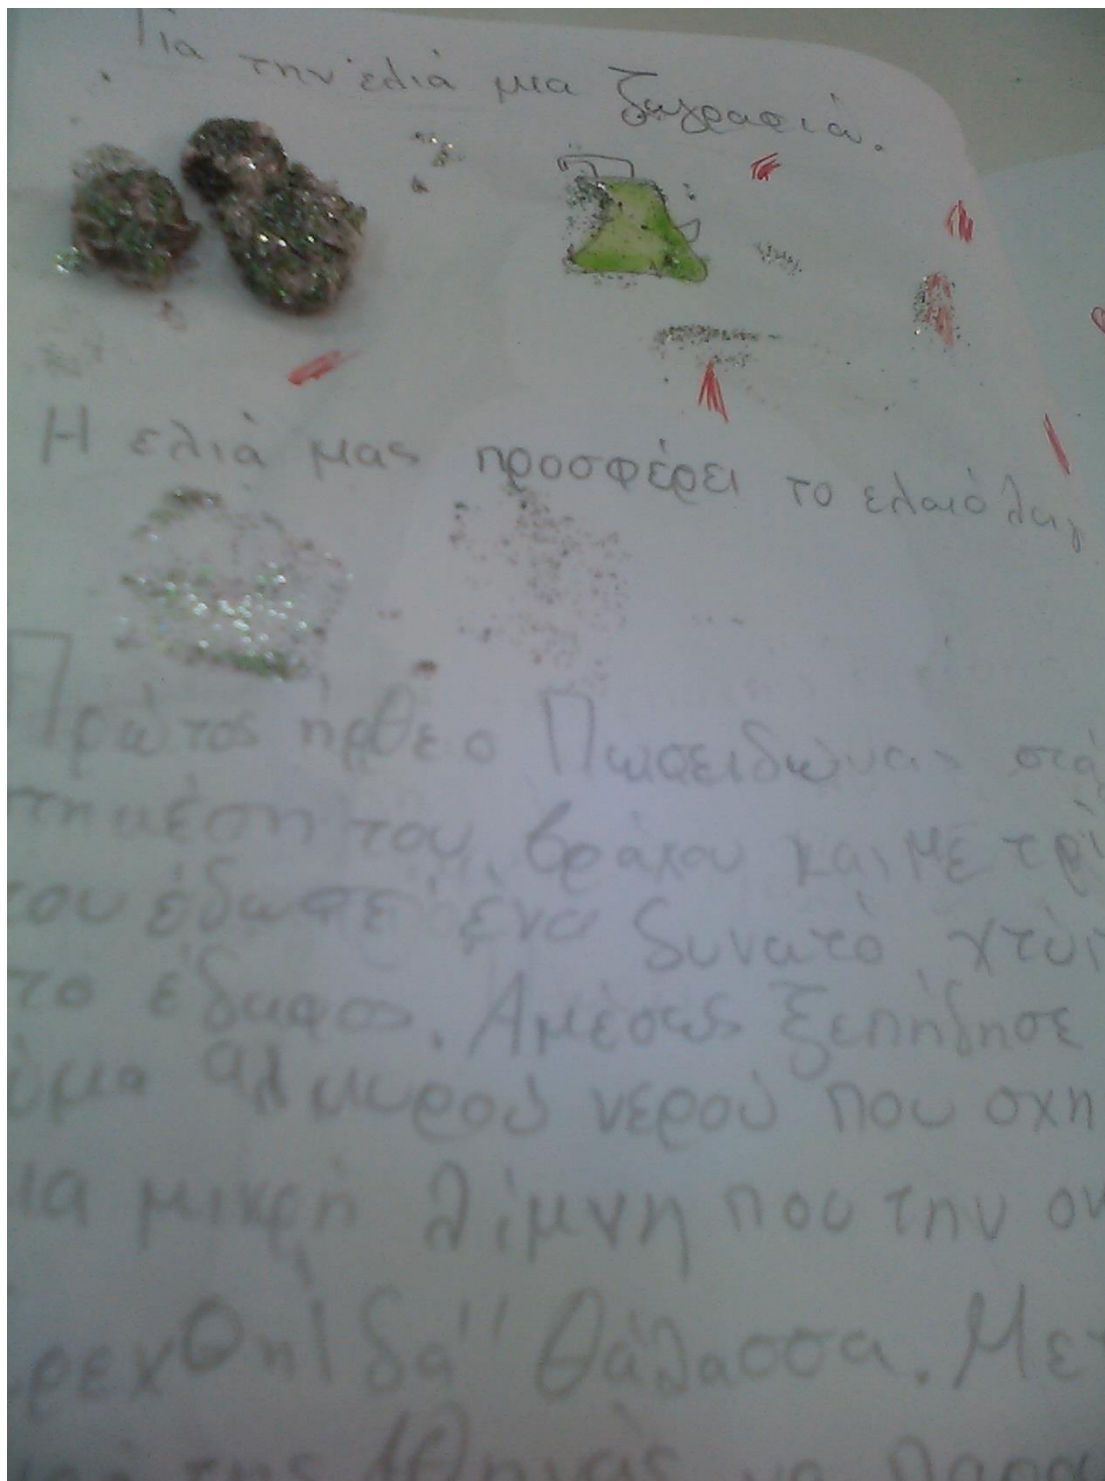 Για την ελιά μια ζωγραφιά.
Η ελιά μας προσφέρει το ελαιόλα
Πρώτος ήρθε ο Πωσειδώνας στά
τη μέση του βράχου και με τρί
του έδωσε ένα δυνατό χτύπ
το έδαφος. Αμέσως ξεπήδησε
ύμα αλμυρού νερού που σχη
ια μικρή λίμνη που την ον
ρεχθηίδα" θάλασσα. Μετ
της Αθηνάς να παρα